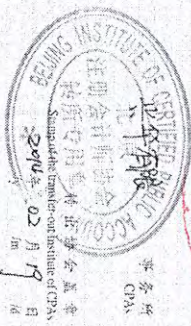 BEIJING INSTITUTE OF CERTIFIED PUBLIC ACCOU
事务所
CPAs
注册会计师协会
转所专用章
转出协会盖章
Stamp of the transfer-out Institute of CPAs
年 02 月 19 日
/y /m /d